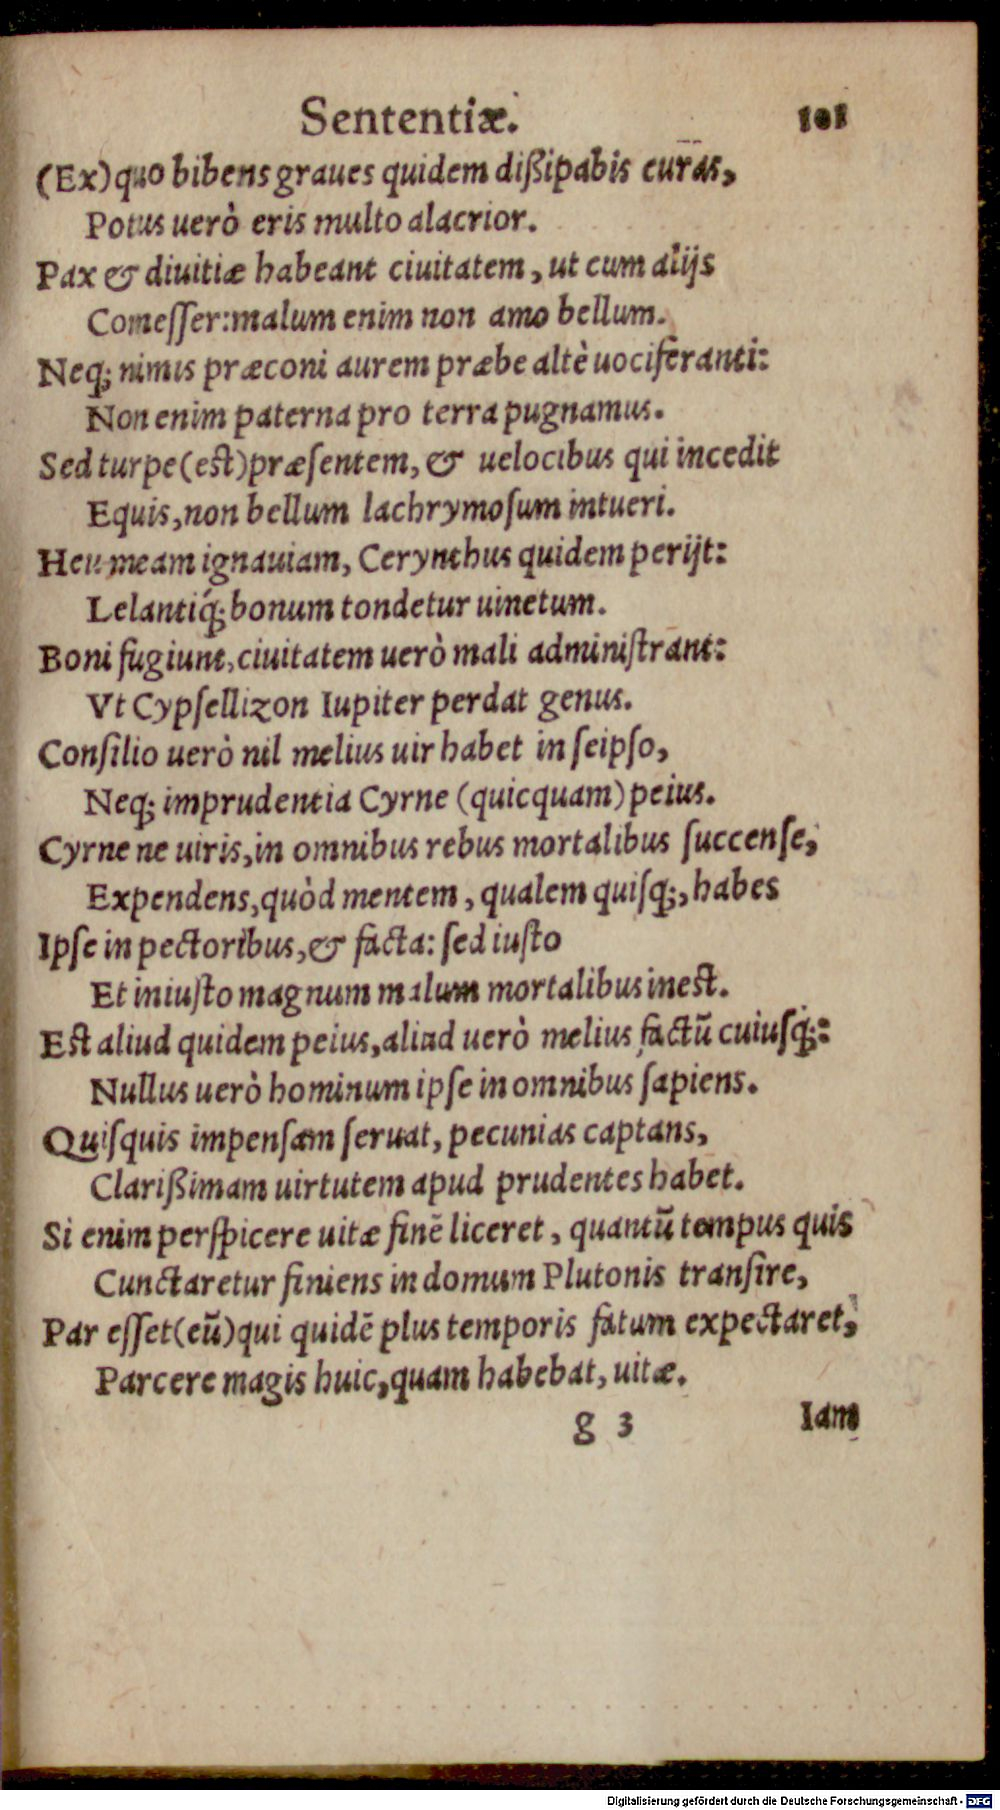 Sententiæ. 101
(Ex)quo bibens graues quidem dißipabis curas,
Potus uerò eris multo alacrior.
Pax & diuitiæ habeant ciuitatem, ut cum alijs
Comeſſer:malum enim non amo bellum.
Neq; nimis præconi aurem præbe altè uociferanti:
Non enim paterna pro terra pugnamus.
Sed turpe(est)præſentem, & uelocibus qui incedit
Equis,non bellum lachrymoſum intueri.
Heu meam ignauiam, Cerynthus quidem perijt:
Lelantiq́; bonum tondetur uinetum.
Boni fugiunt,ciuitatem uerò mali adminiſtrant:
Vt Cypſellizon Iupiter perdat genus.
Conſilio uerò nil melius uir habet in ſeipſo,
Neq; imprudentia Cyrne (quicquam)peius.
Cyrne ne uiris,in omnibus rebus mortalibus ſuccenſe,
Expendens,quòd mentem, qualem quiſq;,habes
Ipſe in pectoribus,& facta: ſed iuſto
Et iniuſto magnum malum mortalibus inest.
Est aliud quidem peius,aliud uerò melius factū cuiuſq;:
Nullus uerò hominum ipſe in omnibus ſapiens.
Quiſquis impenſam ſeruat, pecunias captans,
Clarißimam uirtutem apud prudentes habet.
Si enim perſpicere uitæ finē liceret, quantū tempus quis
Cunctaretur finiens in domum Plutonis tranſire,
Par eſſet(eū)qui quidē plus temporis fatum expectaret,
Parcere magis huic,quam habebat, uitæ.
g 3 Iam
Digitalisierung gefördert durch die Deutsche Forschungsgemeinschaft - DFG